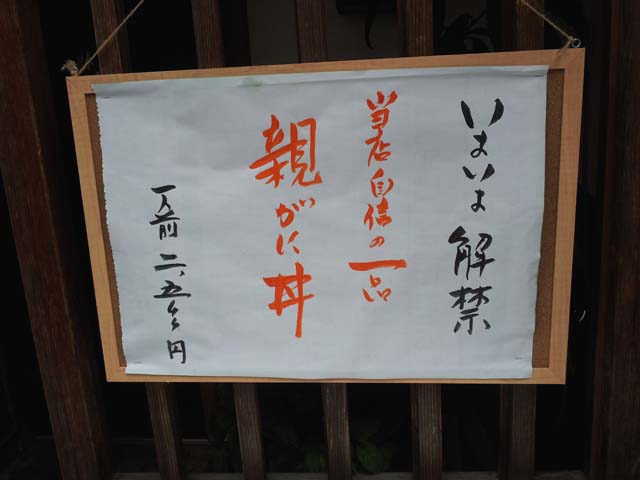 いよいよ解禁
当店自信の一品
親がに丼
一人前二、五〇〇円